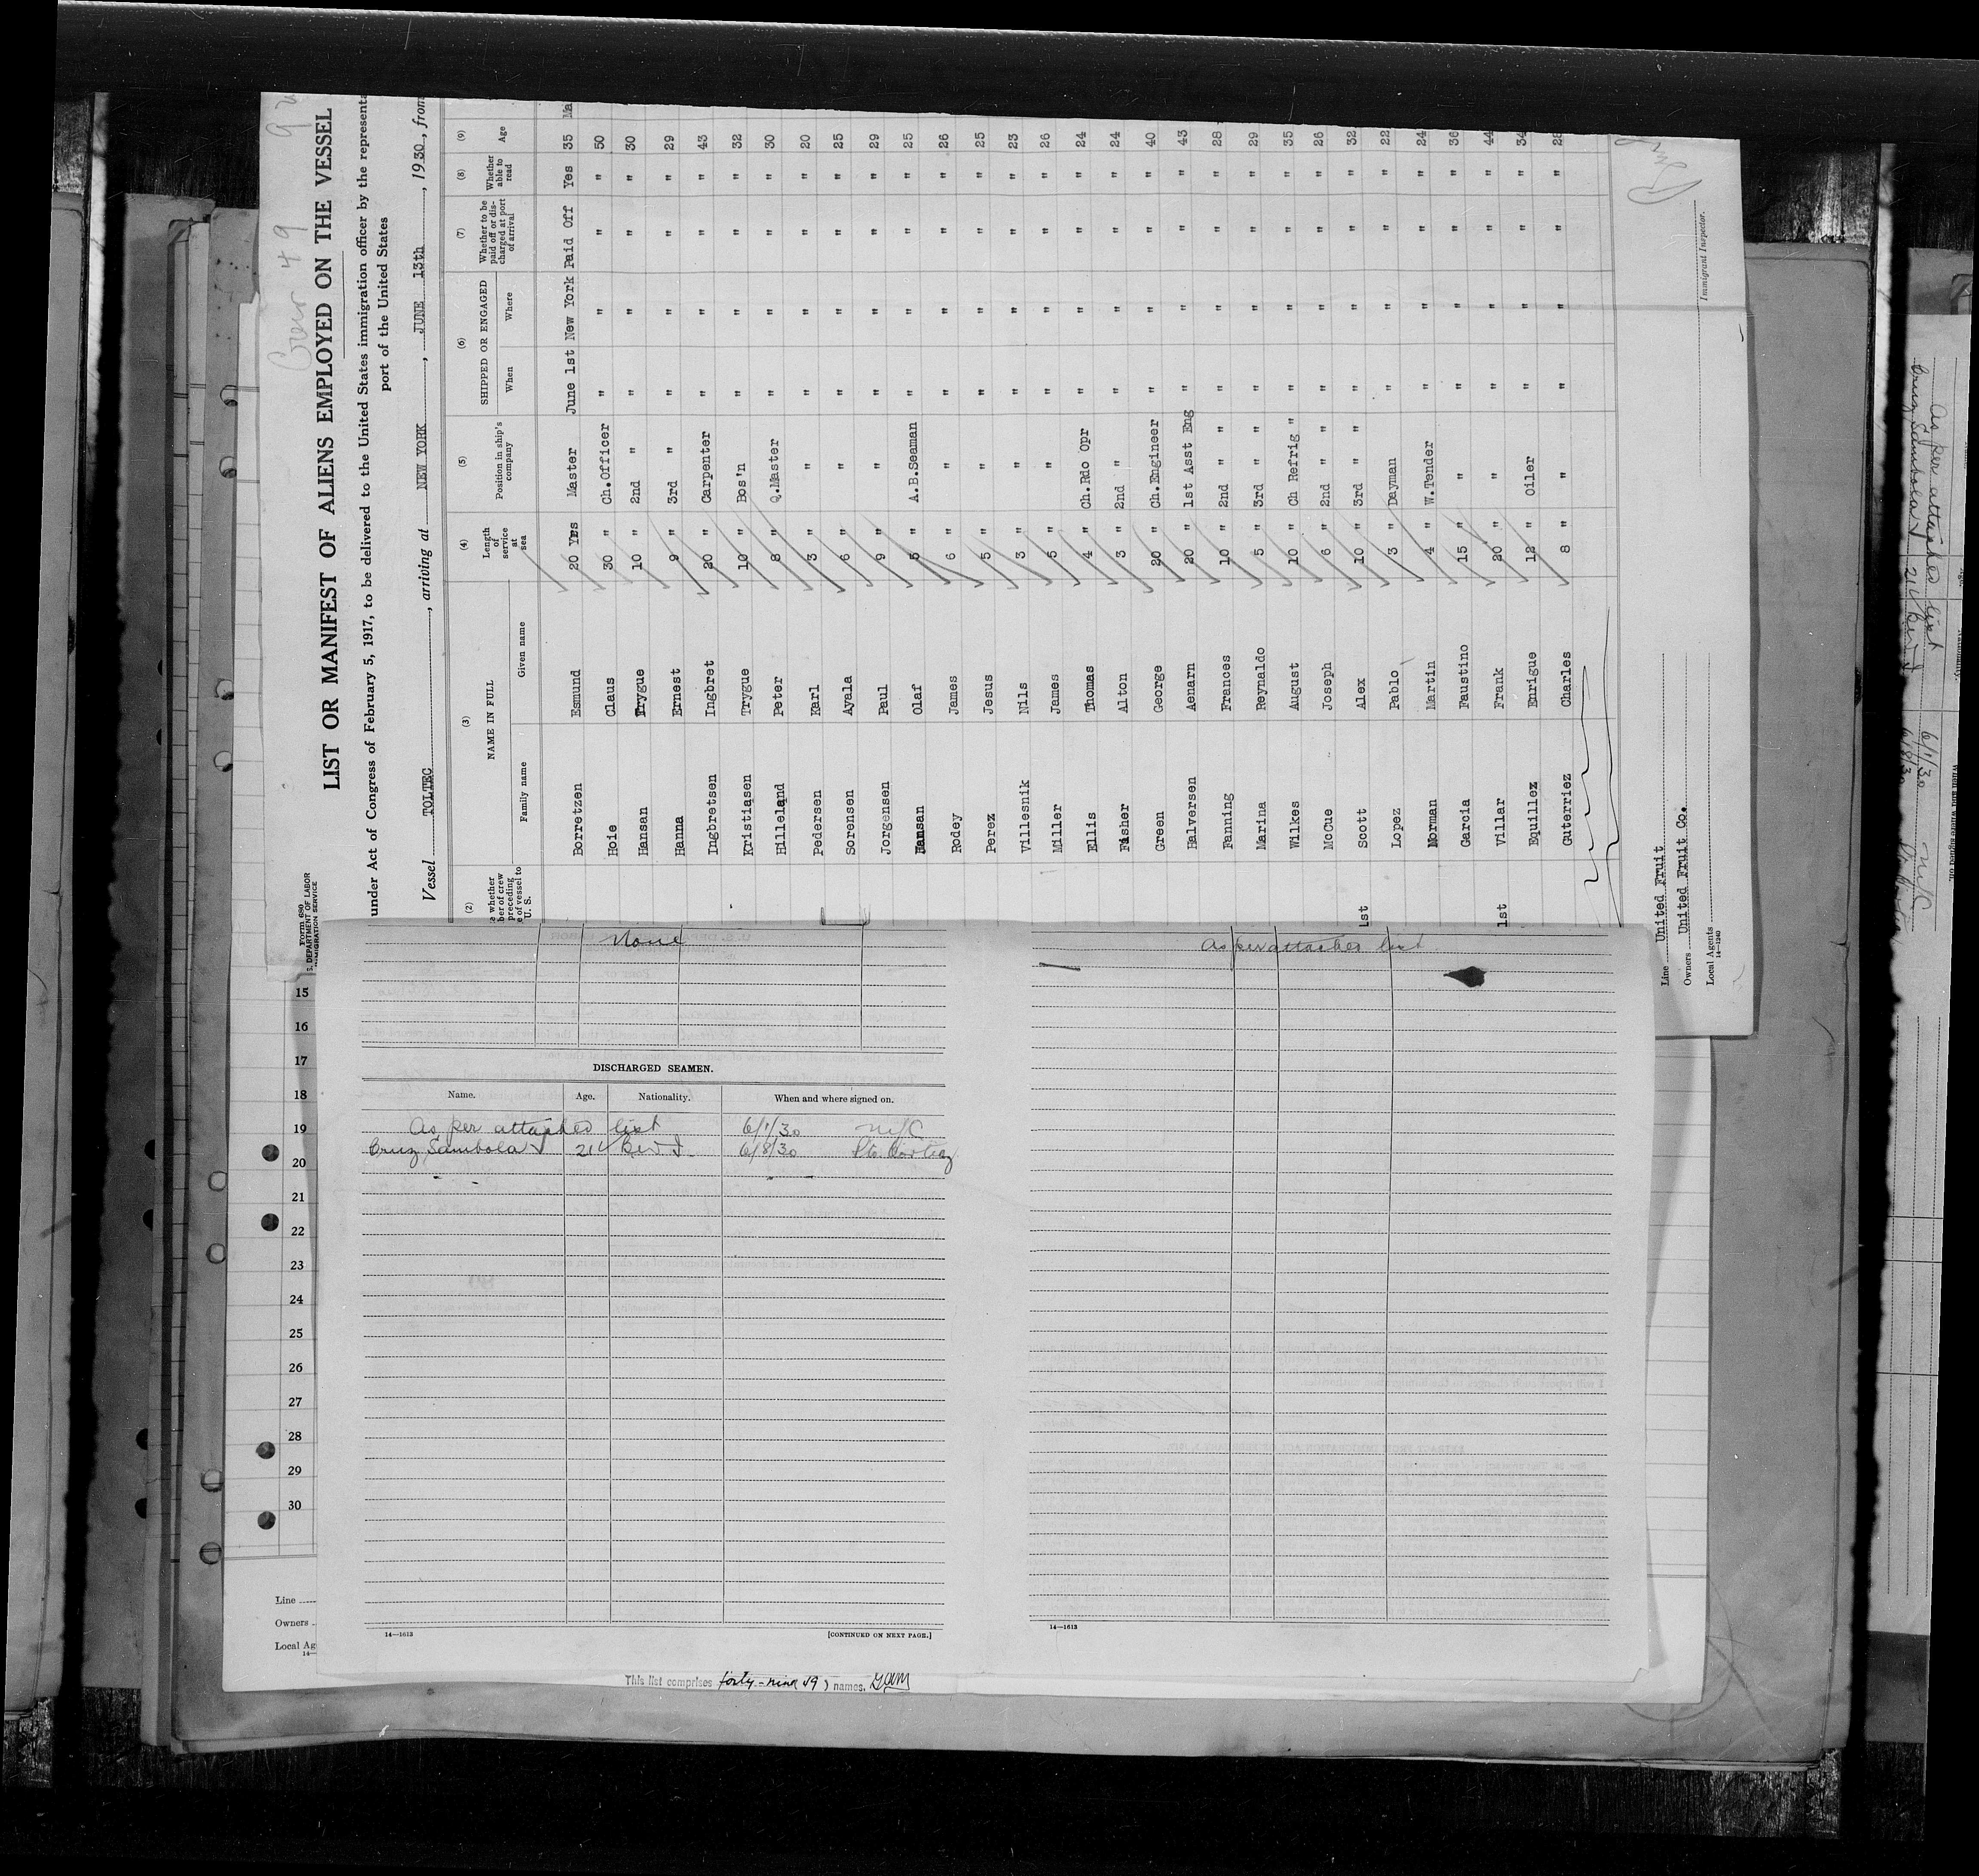 Crew 49
Form 680
S. DEPARTMENT OF LABOR
IMMIGRATION SERVICE
LIST OR MANIFEST OF ALIENS EMPLOYED ON THE VESSEL
under Act of Congress of February 5, 1917, to be delivered to the United States immigration officer by the representa
port of the United States
Vessel TOLTEC, arriving at NEW YORK, JUNE 13th, 1930, from
(2) (3) (4) (5) (6) (7) (8) (9)
whether
ber of crew
preceding
e of vessel to
U. S.
NAME IN FULL
Family name Given name
Length of service at sea
Position in ship's company
SHIPPED OR ENGAGED
When Where
Whether to be paid off or discharged at port of arrival
Whether able to read
Age
Borretzen Esmund 20 Yrs Master June 1st New York Paid Off Yes 35 Ma
Hoie Claus 30 " Ch.Officer " " " " 50
Hansan Trygue 10 " 2nd " " " " " 30
Hanna Ernest 9 " 3rd " " " " " 29
Ingbretsen Ingbret 20 " Carpenter " " " " 43
Kristiasen Trygue 10 " Bos'n " " " " 32
Hilleland Peter 8 " Q.Master " " " " 30
Pedersen Karl 3 " " " " " " 20
Sorensen Ayala 6 " " " " " " 25
Jorgensen Paul 9 " " " " " " 29
Hansan Olaf 5 " A.B.Seaman " " " " 25
Rodey James 6 " " " " " " 26
Perez Jesus 5 " " " " " " 25
Villesnik Nils 3 " " " " " " 23
Miller James 5 " " " " " " 26
Ellis Thomas 4 " Ch.Rdo Opr " " " " 24
Fisher Alton 3 " 2nd " " " " " 24
Green George 20 " Ch.Engineer " " " " 40
Halversen Aenarn 20 " 1st Asst Eng " " " " 43
Fanning Frances 10 " 2nd " " " " " " 28
Marina Reynaldo 5 " 3rd " " " " " " 29
Wilkes August 10 " Ch Refrig " " " " " 35
McCue Joseph 6 " 2nd " " " " " " 26
1st Scott Alex 10 " 3rd " " " " " " 32
Lopez Pablo 3 " Dayman " " " " 22
Norman Martin 4 " W.Tender " " " " 24
Garcia Faustino 15 " " " " " " 36
1st Villar Frank 20 " " " " " " 44
Equillez Enrigue 12 " Oiler " " " " 34
Guterriez Charles 8 " " " " " " 28
Line United Fruit
Owners United Fruit Co.
Local Agents
14—1240
Immigrant Inspector.
None
As per attached list
DISCHARGED SEAMEN.
Name. Age. Nationality. When and where signed on.
As per attached list 6/1/30 NYC
Cruz Sambola 21 6/8/30 Pto. Cortez
15
16
17
18
19
20
21
22
23
24
25
26
27
28
29
30
Line
Owners
Local Ag
14—
14—1613
[CONTINUED ON NEXT PAGE.]
14—1613
This list comprises forty-nine (49) names.
As per attached list 6/1/30 NYC
Cruz Sambola 21 6/8/30
When and where signed on.